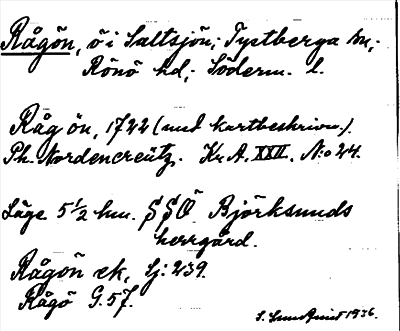 Rågön, ö i Saltsjön; Tystberga sn,
Rönö hd; Söderm. l.
Rågön, 1722 (med kartbeskrivn.).
Ph. Nordencreütz. Kr. A. XXII. N:o 24.
Läge 5 1/2 km. SSO. Björksunds
herrgård.
Rågön ek, Sj: 239.
Rågö G. 57.
1936.